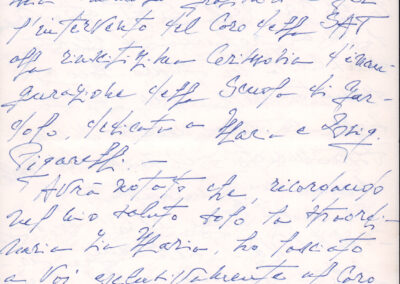 l'intervento del Coro della SAT
alla riuscitissima Cerimonia d'inau-
gurazione della Scuola di Gar-
dolo, dedicata a Maria e Luig.
Pigarelli. —
Avrà notato che, ricordando
nel mio saluto solo la straordi-
naria Zia Maria, ho lasciato
a Voi esclusivamente al Coro